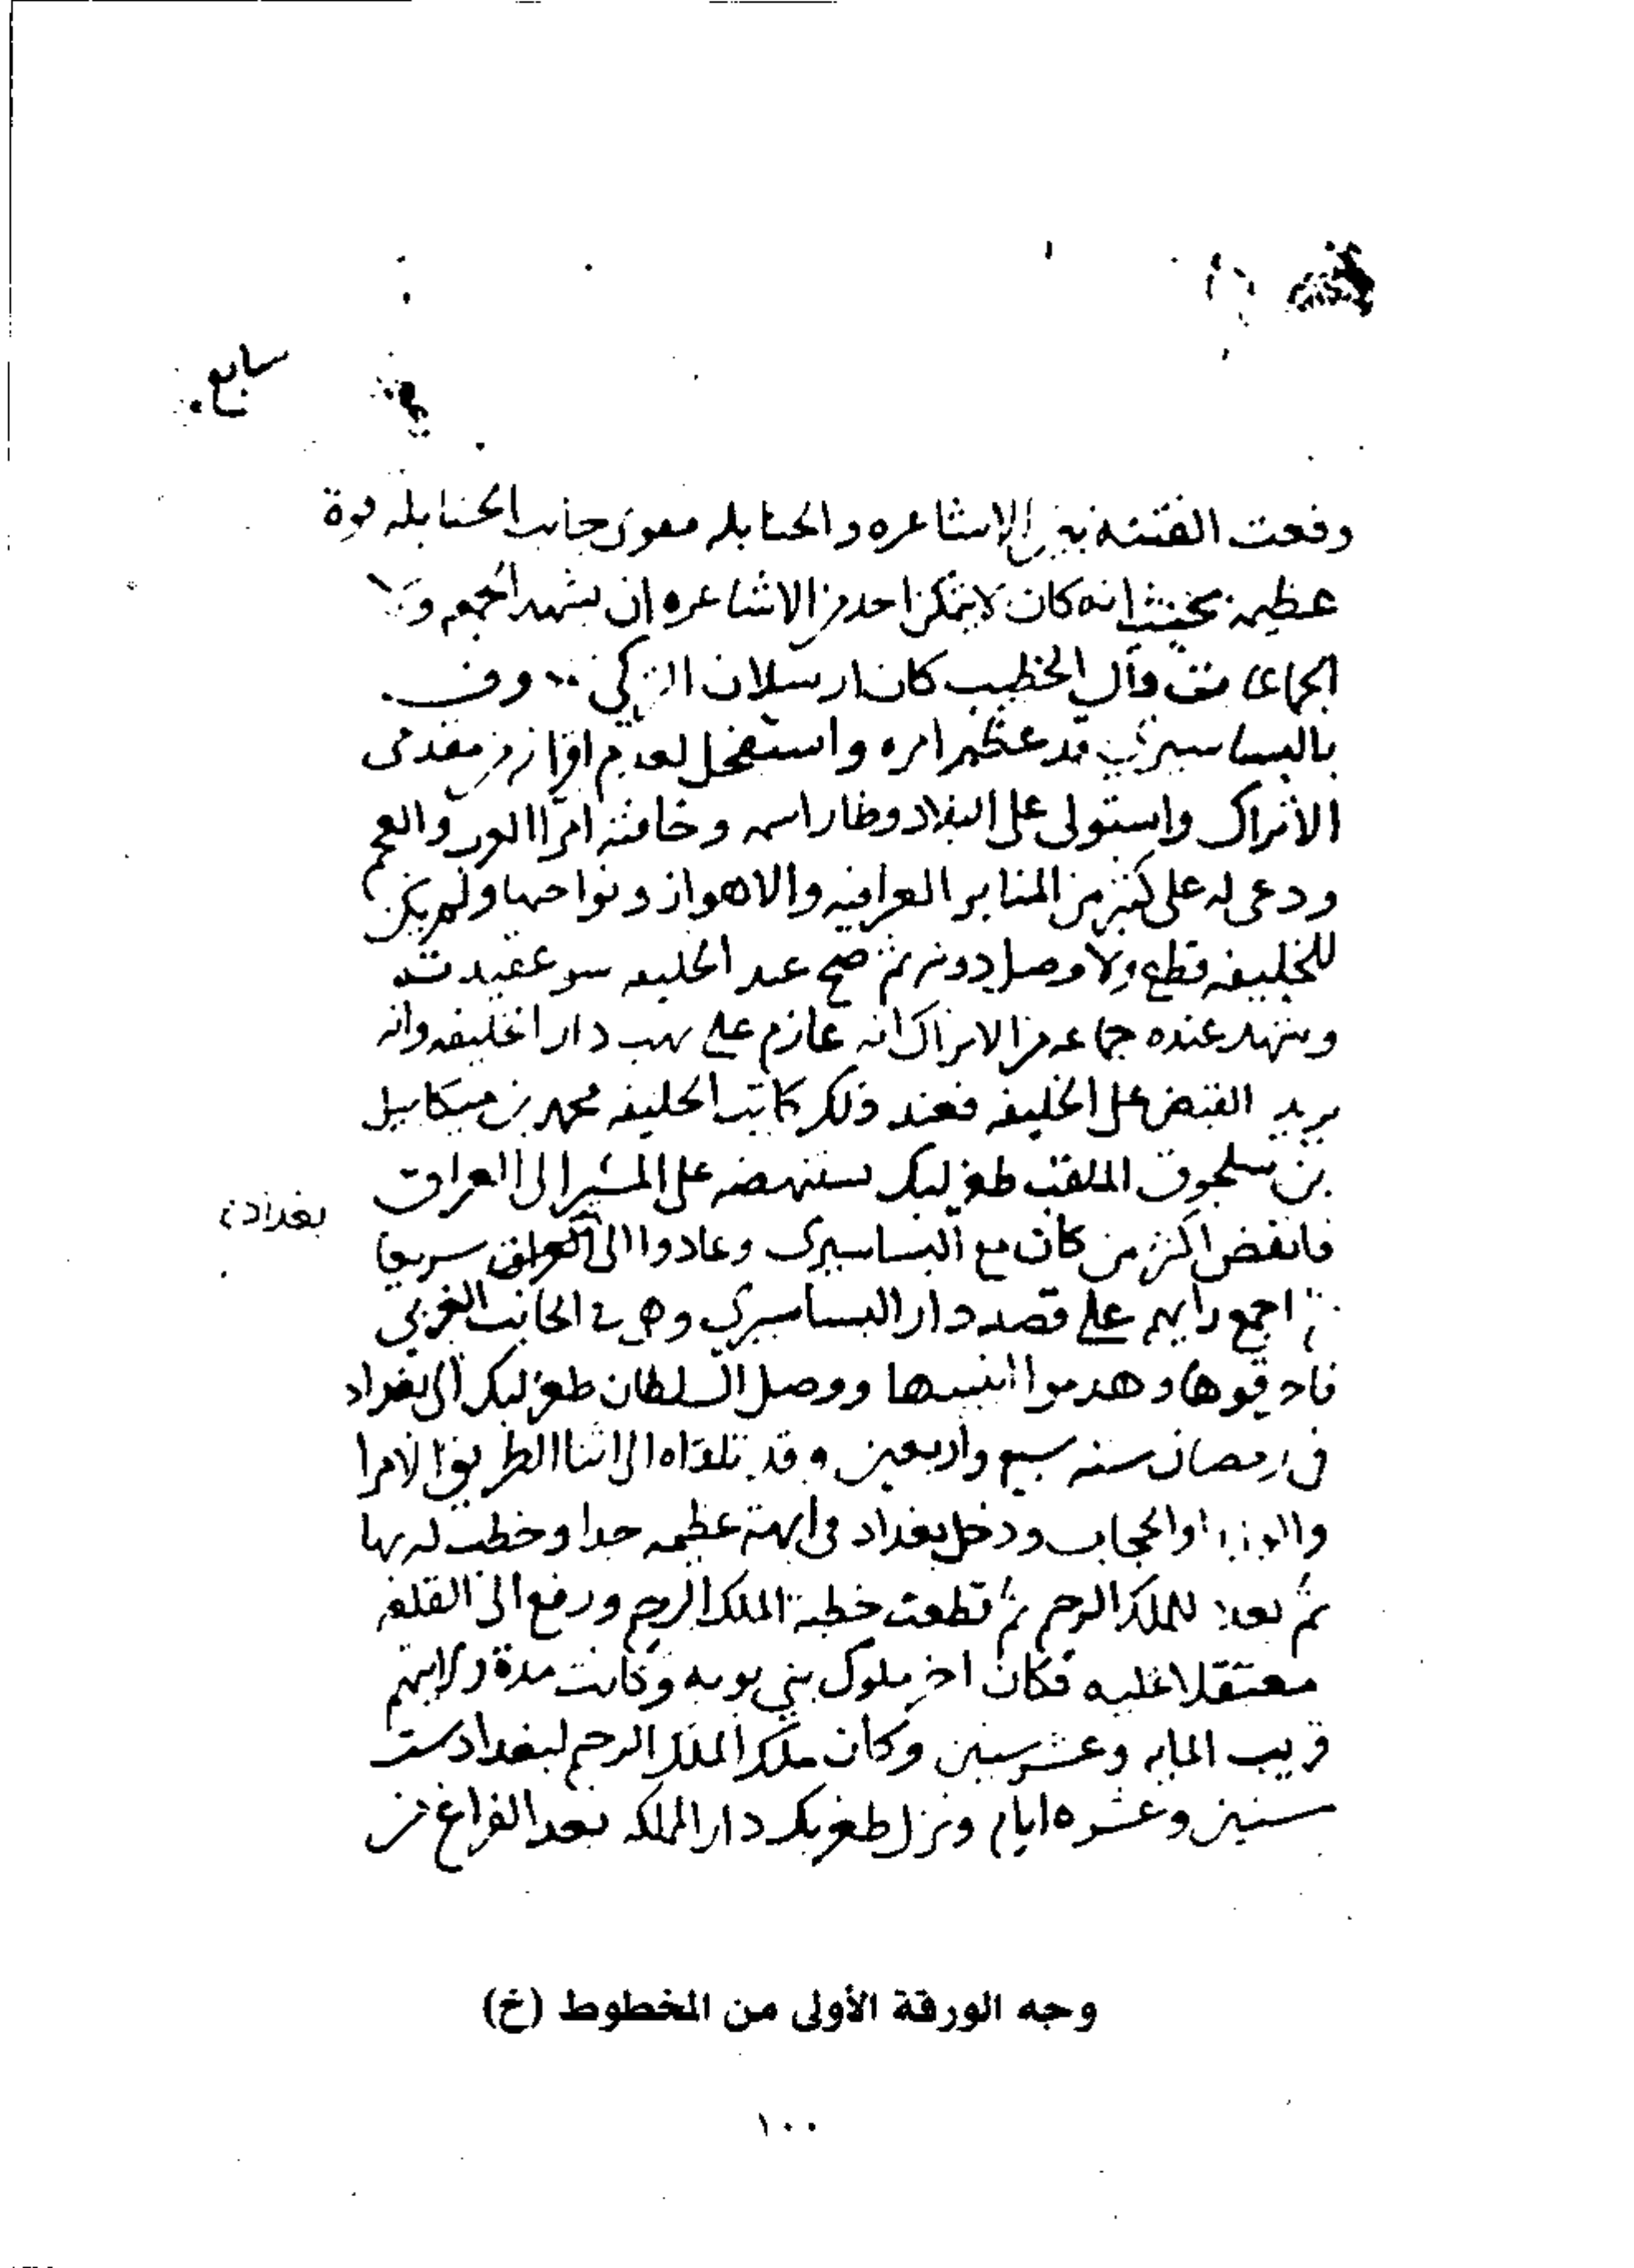 سابع
وقعت الفتنة بين الاشاعره والحنابله فقوى جانب الحنابله قوة
عظيمة بحيث انه كان لا يتمكن احد من الاشاعره ان يشهد الجمع ولا
الجماعات قال الخطيب كان ارسلان التركي
بالبساسيري قد عظم امره واستفحل لعدم اقرانه من مقدمى
الاتراك واستولى على البلاد وطار اسمه وخافته امرا العرب والعجم
ودعى له على كثير من المنابر العراقيه والاهواز ونواحيها ولم يكن
للخليفه قطع ولا وصل دونه ثم صح عند الخليفه سو عقيدته
وشهد عنده جماعه من الاتراك انه عازم على نهب دار الخليفه وانه
يريد القبض على الخليفه فعند ذلك كاتب الخليفه محمد بن ميكاييل
بن سلجوق الملقب طغرلبك يستنهضه على المسير الى العراق
فانفض اكثر من كان مع البساسيرى وعادوا الى العراق سريعا
بغداد
ثم اجمع رايهم على قصد دار البساسيري وهى في الجانب الغربي
فاحرقوها وهدموا ابنيتها ووصل السلطان طغرلبك الى بغداد
فى رمضان سنه سبع واربعين وقد تلقاه الى اثنا الطريق الامرا
والوزرا والحجاب ودخل بغداد فى ابهة عظيمه جدا وخطب له بها
ثم بعده للملك الرحيم ثم قطعت خطبة الملك الرحيم ورفع الى القلعه
معتقلا عليه فكان اخر ملوك بني بويه وكانت مدة ولايتهم
قريب المايه وعشر سنين وكان ملك الملك الرحيم لبغداد ست
سنين وعشره ايام ونزل طغرلبك دار المملكه بعد الفراغ من
وجه الورقة الأولى من المخطوط (خ)
١٠٠